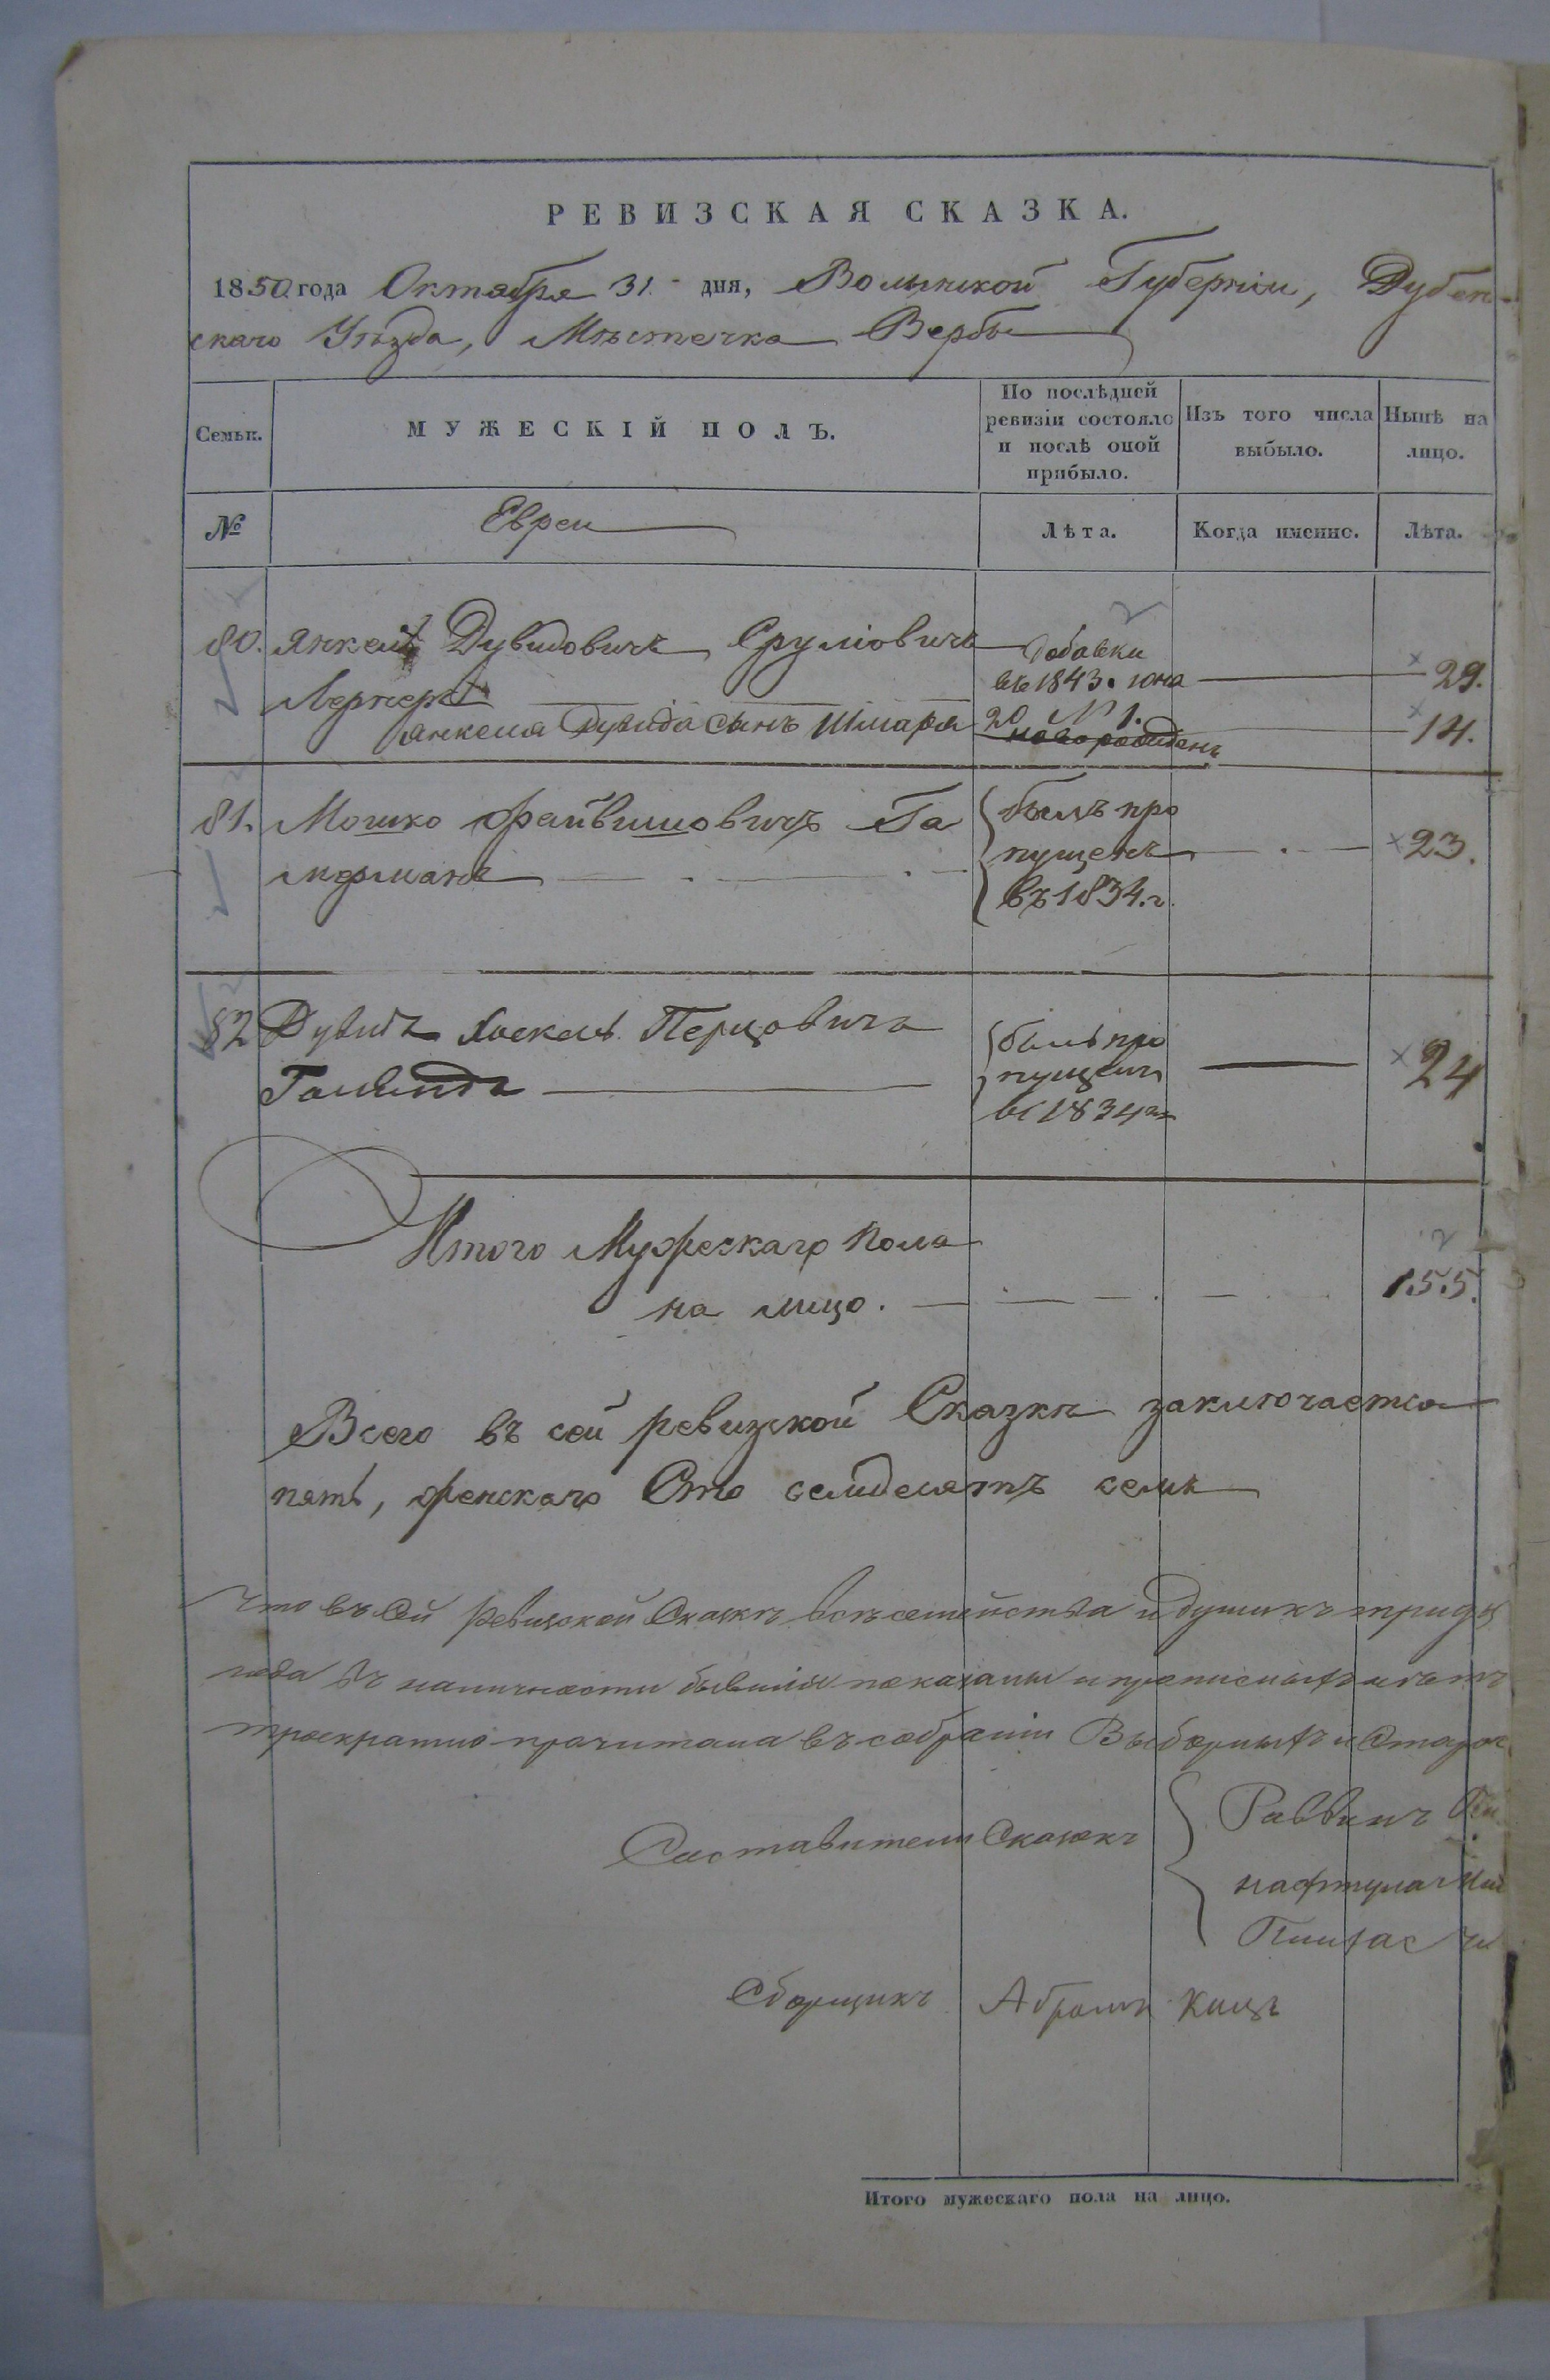 РЕВИЗСКАЯ СКАЗКА.
1850 года Октября 31 дня, Волынской Губерніи, Дубен-
скаго Уѣзда, Мѣстечка Вербы
Семьи.
МУЖЕСКІЙ ПОЛЪ.
По послѣдней ревизіи состояло и послѣ оной прибыло.
Изъ того числа выбыло.
Нынѣ на лицо.
№
Евреи
Лѣта.
Когда именно.
Лѣта.
80. Янкель Дувидовичъ Сруліовичъ
Лернеръ
добавки
въ 1843. юня
20 № 1.
29.
Янкеля Дувида сынъ Шмаря
новорожденъ
14.
81. Мошко Файвишовичъ Га
мерманъ
былъ про
пущенъ
въ 1834.г.
23.
82 Дувидъ Хаскель Перцовичъ
былъ про
пущенъ
въ 1834
24
Итого Мужескаго пола
на лицо.
155.
Всего въ сей ревизской Сказкѣ заключается
пять, женскаго Сто семдесятъ семь
Что въ Сей Ревизской Сказкѣ всѣ семейства и
года въ наличности бывшія показаны и
троекратно прочитана въ собраніи Выборныхъ и
Составители Сказокъ
Раввинъ
Нафтула
Пинхас
Сборщикъ Абрамъ Кицъ
Итого мужескаго пола на лицо.